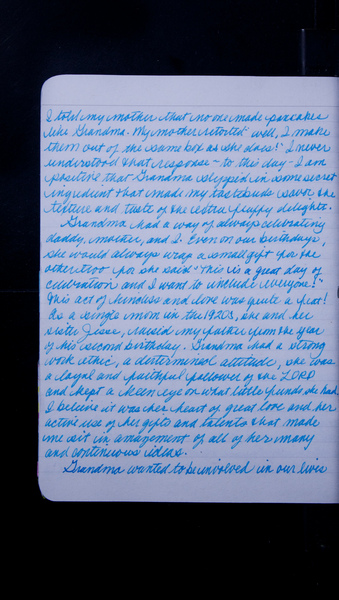 I told my mother that no one made pancakes
like Grandma. My mother retorted "well, I make
them out of the same box as she does!" I never
understood that response - to this day - I am
positive that Grandma slipped in some secret
ingredient that made my tastebuds savor the
texture and taste of the extra fluffy delights.
Grandma had a way of always celebrating
daddy, mother, and I. Even on our birthdays,
she would always wrap a small gift for the
other too for she said "This is a great day of
celebration and I want to include everyone!"
This act of kindness and love was quite a feat!
As a single mom in the 1920's, she and her
sister Jesse, raised my father from the year
of his second birthday. Grandma had a strong
work ethic, a determined attitude, she was
a loyal and faithful follower of the LORD
and kept a keen eye on what little funds she had.
I believe it was her heart of great love and her
active use of her gifts and talents that made
me sit in amazement of all of her many
and continuous ideas.
Grandma wanted to be involved in our lives